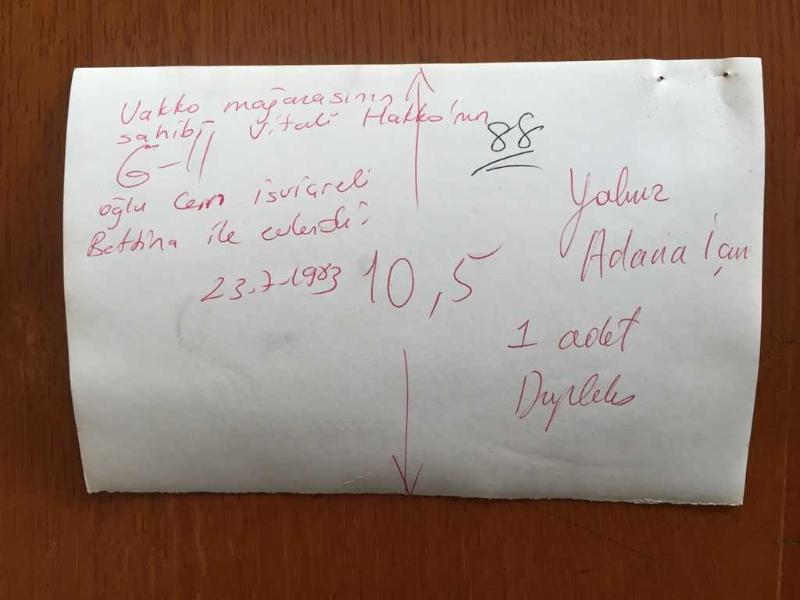 Vakko mağazasının
sahibi Vitali Hakko'nun
G-11
oğlu Cem isviçreli
Bettina ile evlendi.
23.7.1983
10,5
88
Yalnız
Adana için
1 adet
Dupleks